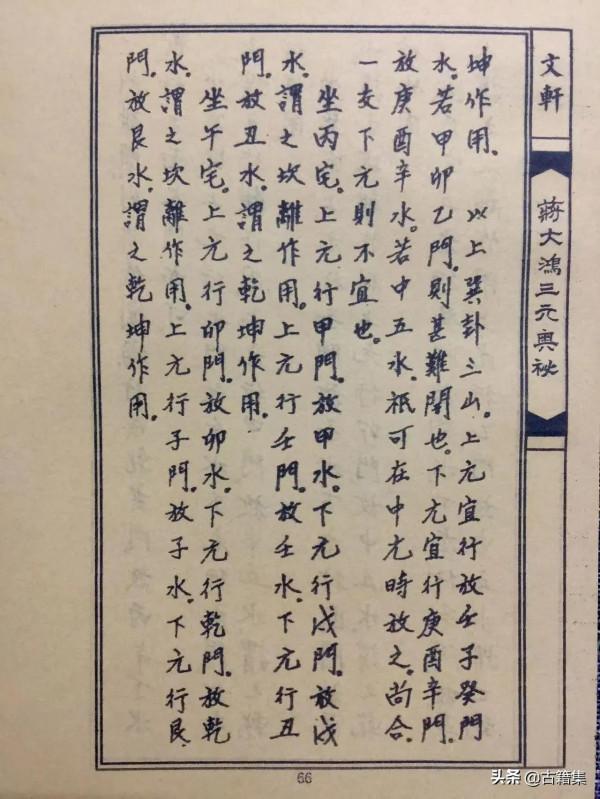 文軒
蔣大鴻三元奧祕
坤作用。　以上巽卦三山。上元宜行放壬子癸門
水。若甲卯乙門。則甚難開也。下元宜行庚酉辛門。
放庚酉辛水。若中五水。祇可在中元時放之。尚合。
一交下元則不宜也。
坐丙宅。上元行甲門。放甲水。下元行戌門。放戌
水。謂之坎離作用。上元行壬門。放壬水。下元行丑
門。放丑水。謂之乾坤作用。
坐午宅。上元行卯門。放卯水。下元行乾門。放乾
水。謂之坎離作用。上元行子門。放子水。下元行艮
門。放艮水。謂之乾坤作用。
66
头条 @古籍集